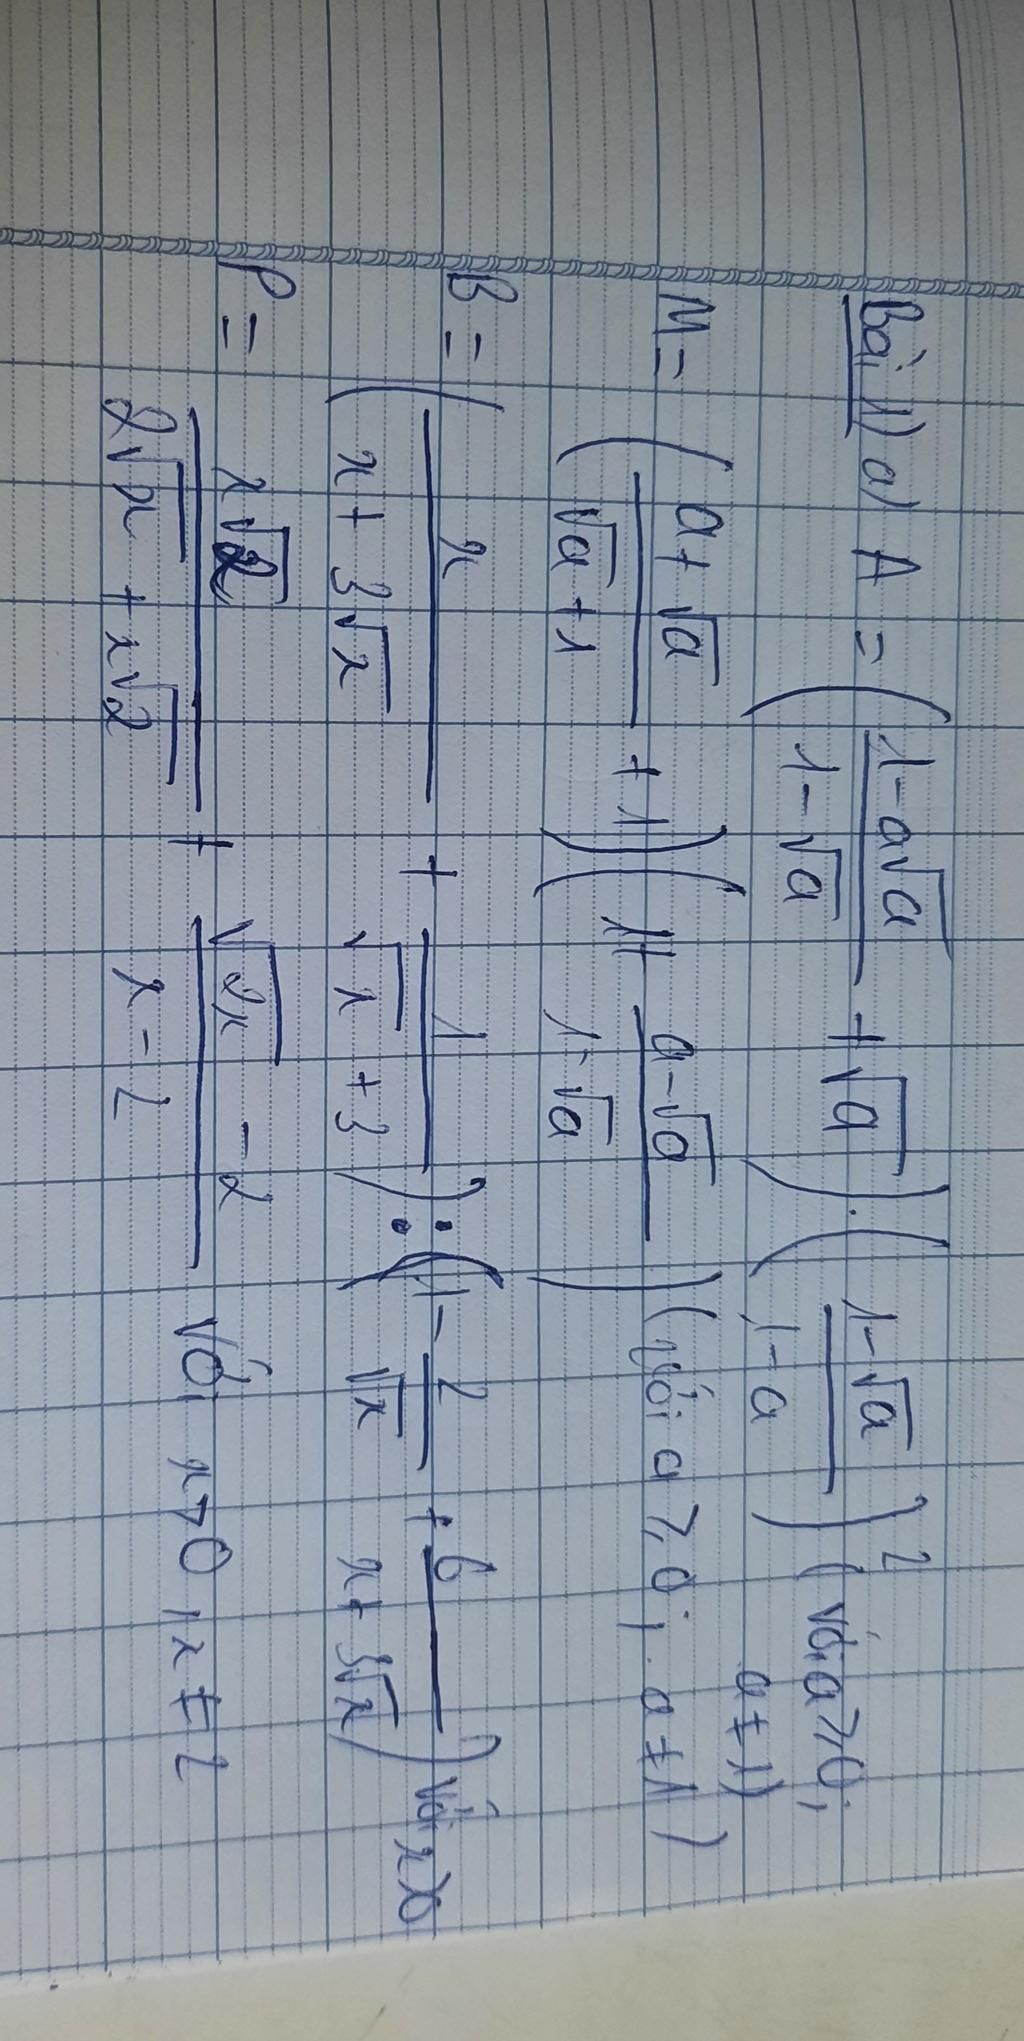 Bài 1) a) A = ( (1 - a√a)/(1 - √a) + √a ) . ( (1 - √a)/(1 - a) )² ( với a ≥ 0;
a ≠ 1)
M = ( (a + √a)/(√a + 1) + 1 ) ( 1 + (a - √a)/(1 - √a) ) ( với a ≥ 0; a ≠ 1 )
B = ( x/(x + 3√x) + 1/(√x + 3) ) : ( 1 - 2/√x + 6/(x + 3√x) ) với x > 0
P = x√2/(2√x + x√2) + (√2x - 2)/(x - 2) với x > 0, x ≠ 2